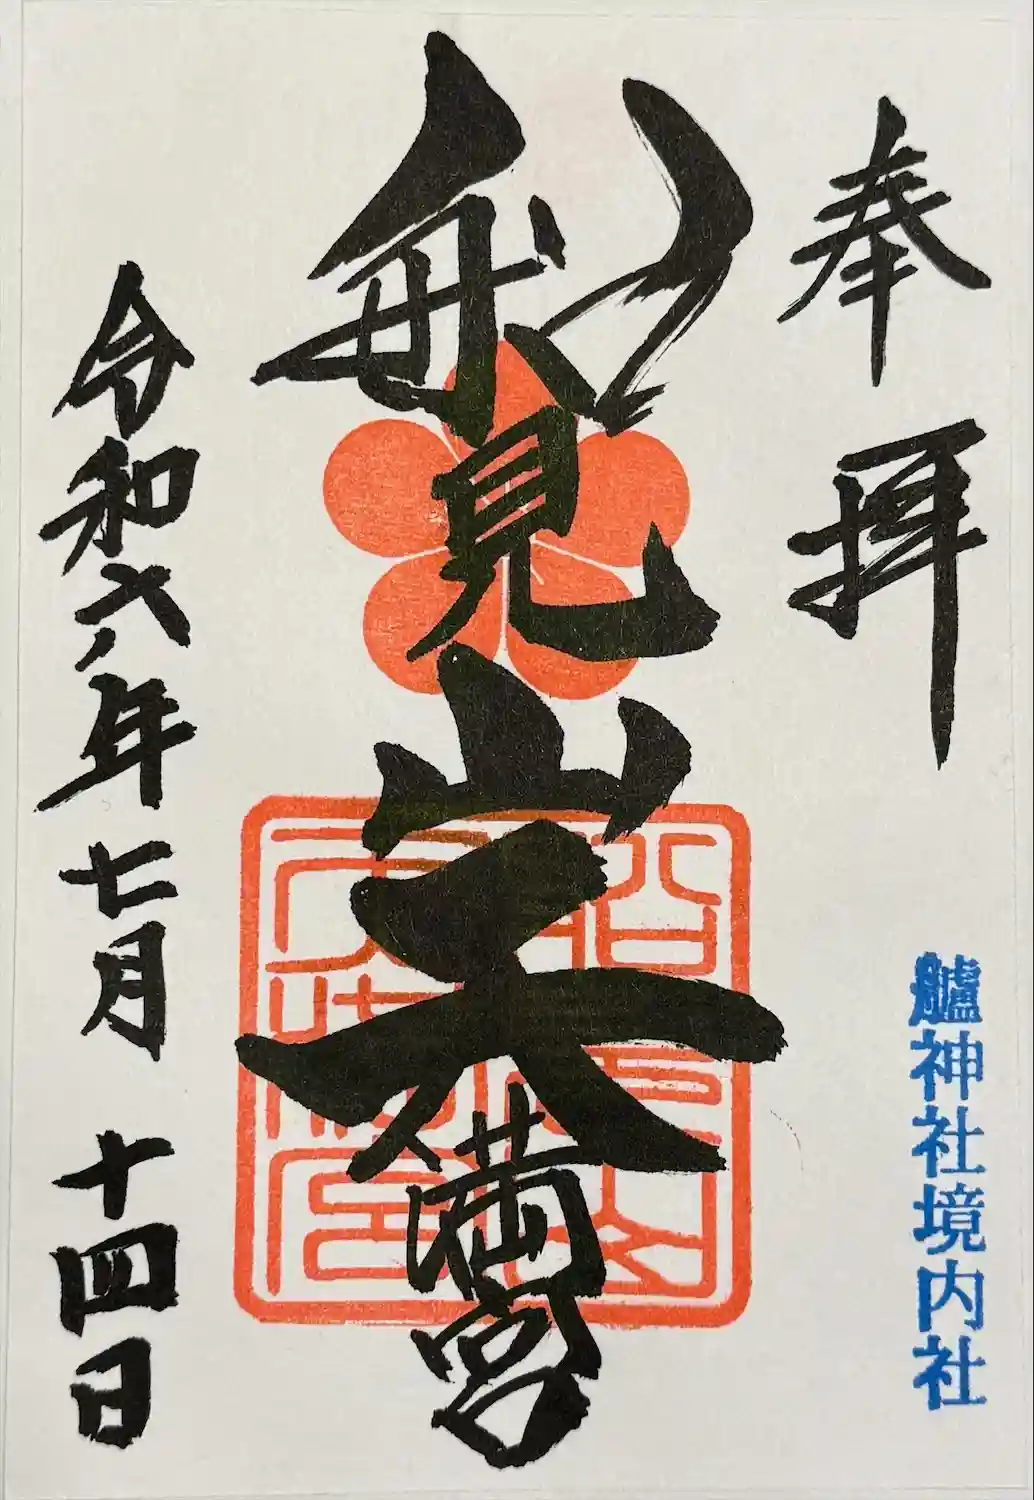 奉拝
艫神社境内社
船見山天満宮
令和六年七月十四日